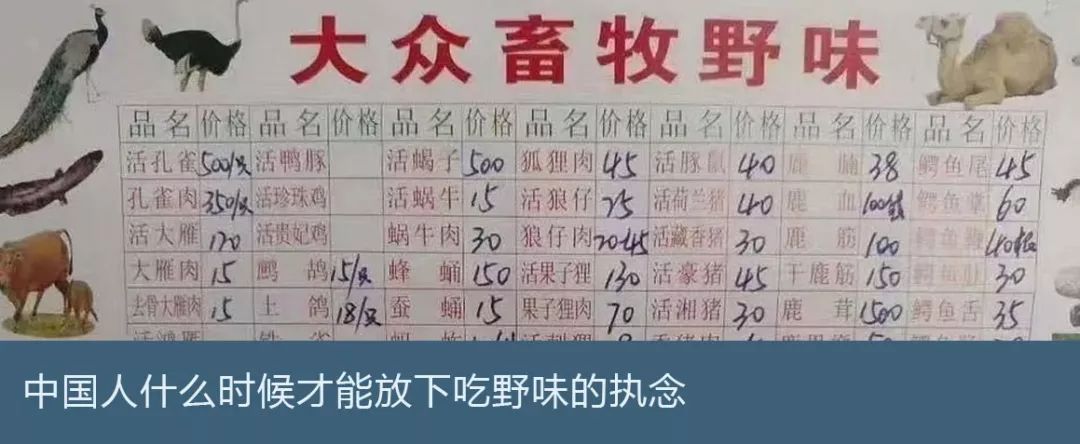 大众畜牧野味
品名 价格 品名 价格 品名 价格 品名 价格 品名 价格 品名 价格 品名 价格
活孔雀 500/只 活鸭豚 活蝎子 500 狐狸肉 45 活豚鼠 40 鹿 38 鳄鱼尾 45
孔雀肉 350/只 活珍珠鸡 活蜗牛 15 活狼仔 25 活荷兰猪 40 鹿血 鳄鱼掌 60
活大雁 120 活贵妃鸡 蜗牛肉 30 狼仔肉 20-45 活藏香猪 30 鹿筋 100 鳄鱼
大雁肉 15 鹧鸪 15/只 蜂蛹 150 活果子狸 130 活豪猪 45 干鹿筋 150 鳄鱼肚 30
去骨大雁肉 15 土鸽 18/只 蚕蛹 15 果子狸肉 70 活湘猪 30 鹿茸 1500 鳄鱼舌 35
中国人什么时候才能放下吃野味的执念